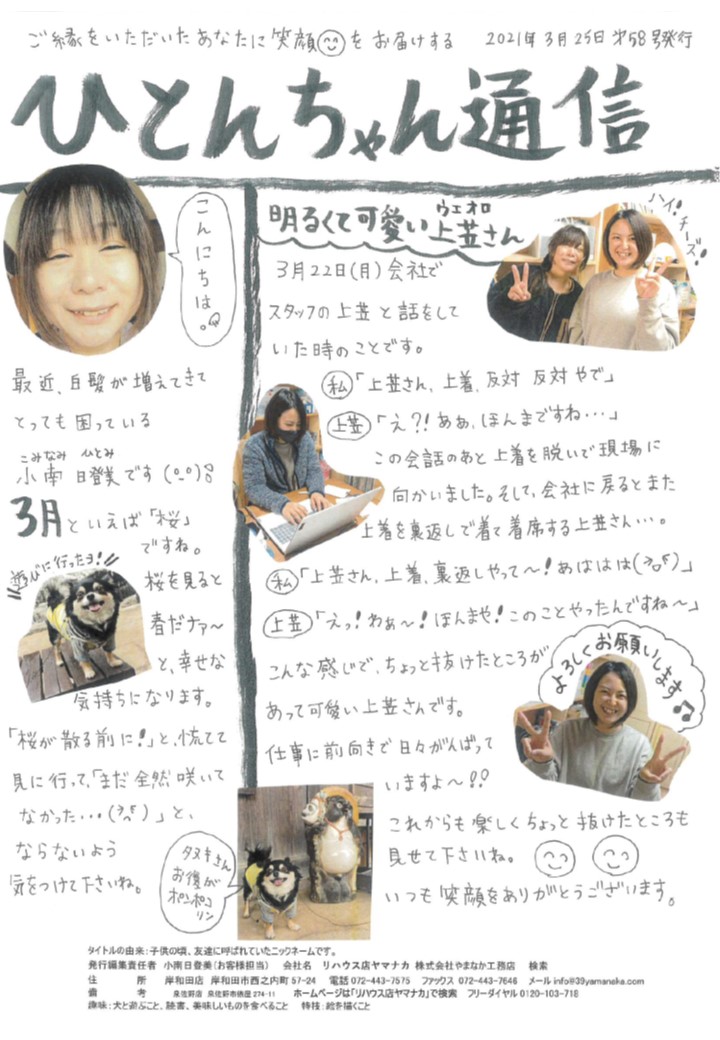 ご縁をいただいたあなたに笑顔をお届けする 2021年3月25日 第58号発行
ひとんちゃん通信
こんにちは。
最近、白髪が増えてきて
とっても困っている
こみなみ ひとみ
小南 日登美です(o_o)8
3月といえば「桜」
ですね。
遊びに行ったヨ!!
桜を見ると
春だナァ〜
と、幸せな
気持ちになります。
「桜が散る前に!」と、慌てて
見に行って、「まだ全然咲いて
なかった…」と、
ならないよう
気をつけて下さいね。
ウエオロ
明るくて可愛い上笠さん
ハイ!チーズ!
3月22日(月)会社で
スタッフの上笠と話をして
いた時のことです。
私「上笠さん、上着、反対 反対やで」
上笠「え?!ああ、ほんまですね…」
この会話のあと上着を脱いで現場に
向かいました。そして、会社に戻るとまた
上着を裏返しで着て着席する上笠さん…。
私「上笠さん、上着、裏返しやって〜!あははは」
上笠「えっ!わぁ〜!ほんまや!このことやったんですね〜」
こんな感じで、ちょっと抜けたところが
あって可愛い上笠さんです。
よろしくお願いします♫
仕事に前向きで日々がんばって
いますよ〜!!
これからも楽しくちょっと抜けたところも
見せて下さいね。
いつも笑顔をありがとうございます。
タヌキさん
お腹が
ポンポコ
リン
タイトルの由来:子供の頃、友達に呼ばれていたニックネームです。
発行編集責任者 小南日登美(お客様担当) 会社名 リハウス店ヤマナカ 株式会社やまなか工務店 検索
住 所 岸和田店 岸和田市西之内町57-24 電話072-443-7575 ファックス 072-443-7646 メール info@39yamanaka.com
備 考 泉佐野店 泉佐野市鶴原274-11 ホームページは「リハウス店ヤマナカ」で検索 フリーダイヤル0120-103-718
趣味:犬と遊ぶこと、読書、美味しいものを食べること 特技:絵を描くこと